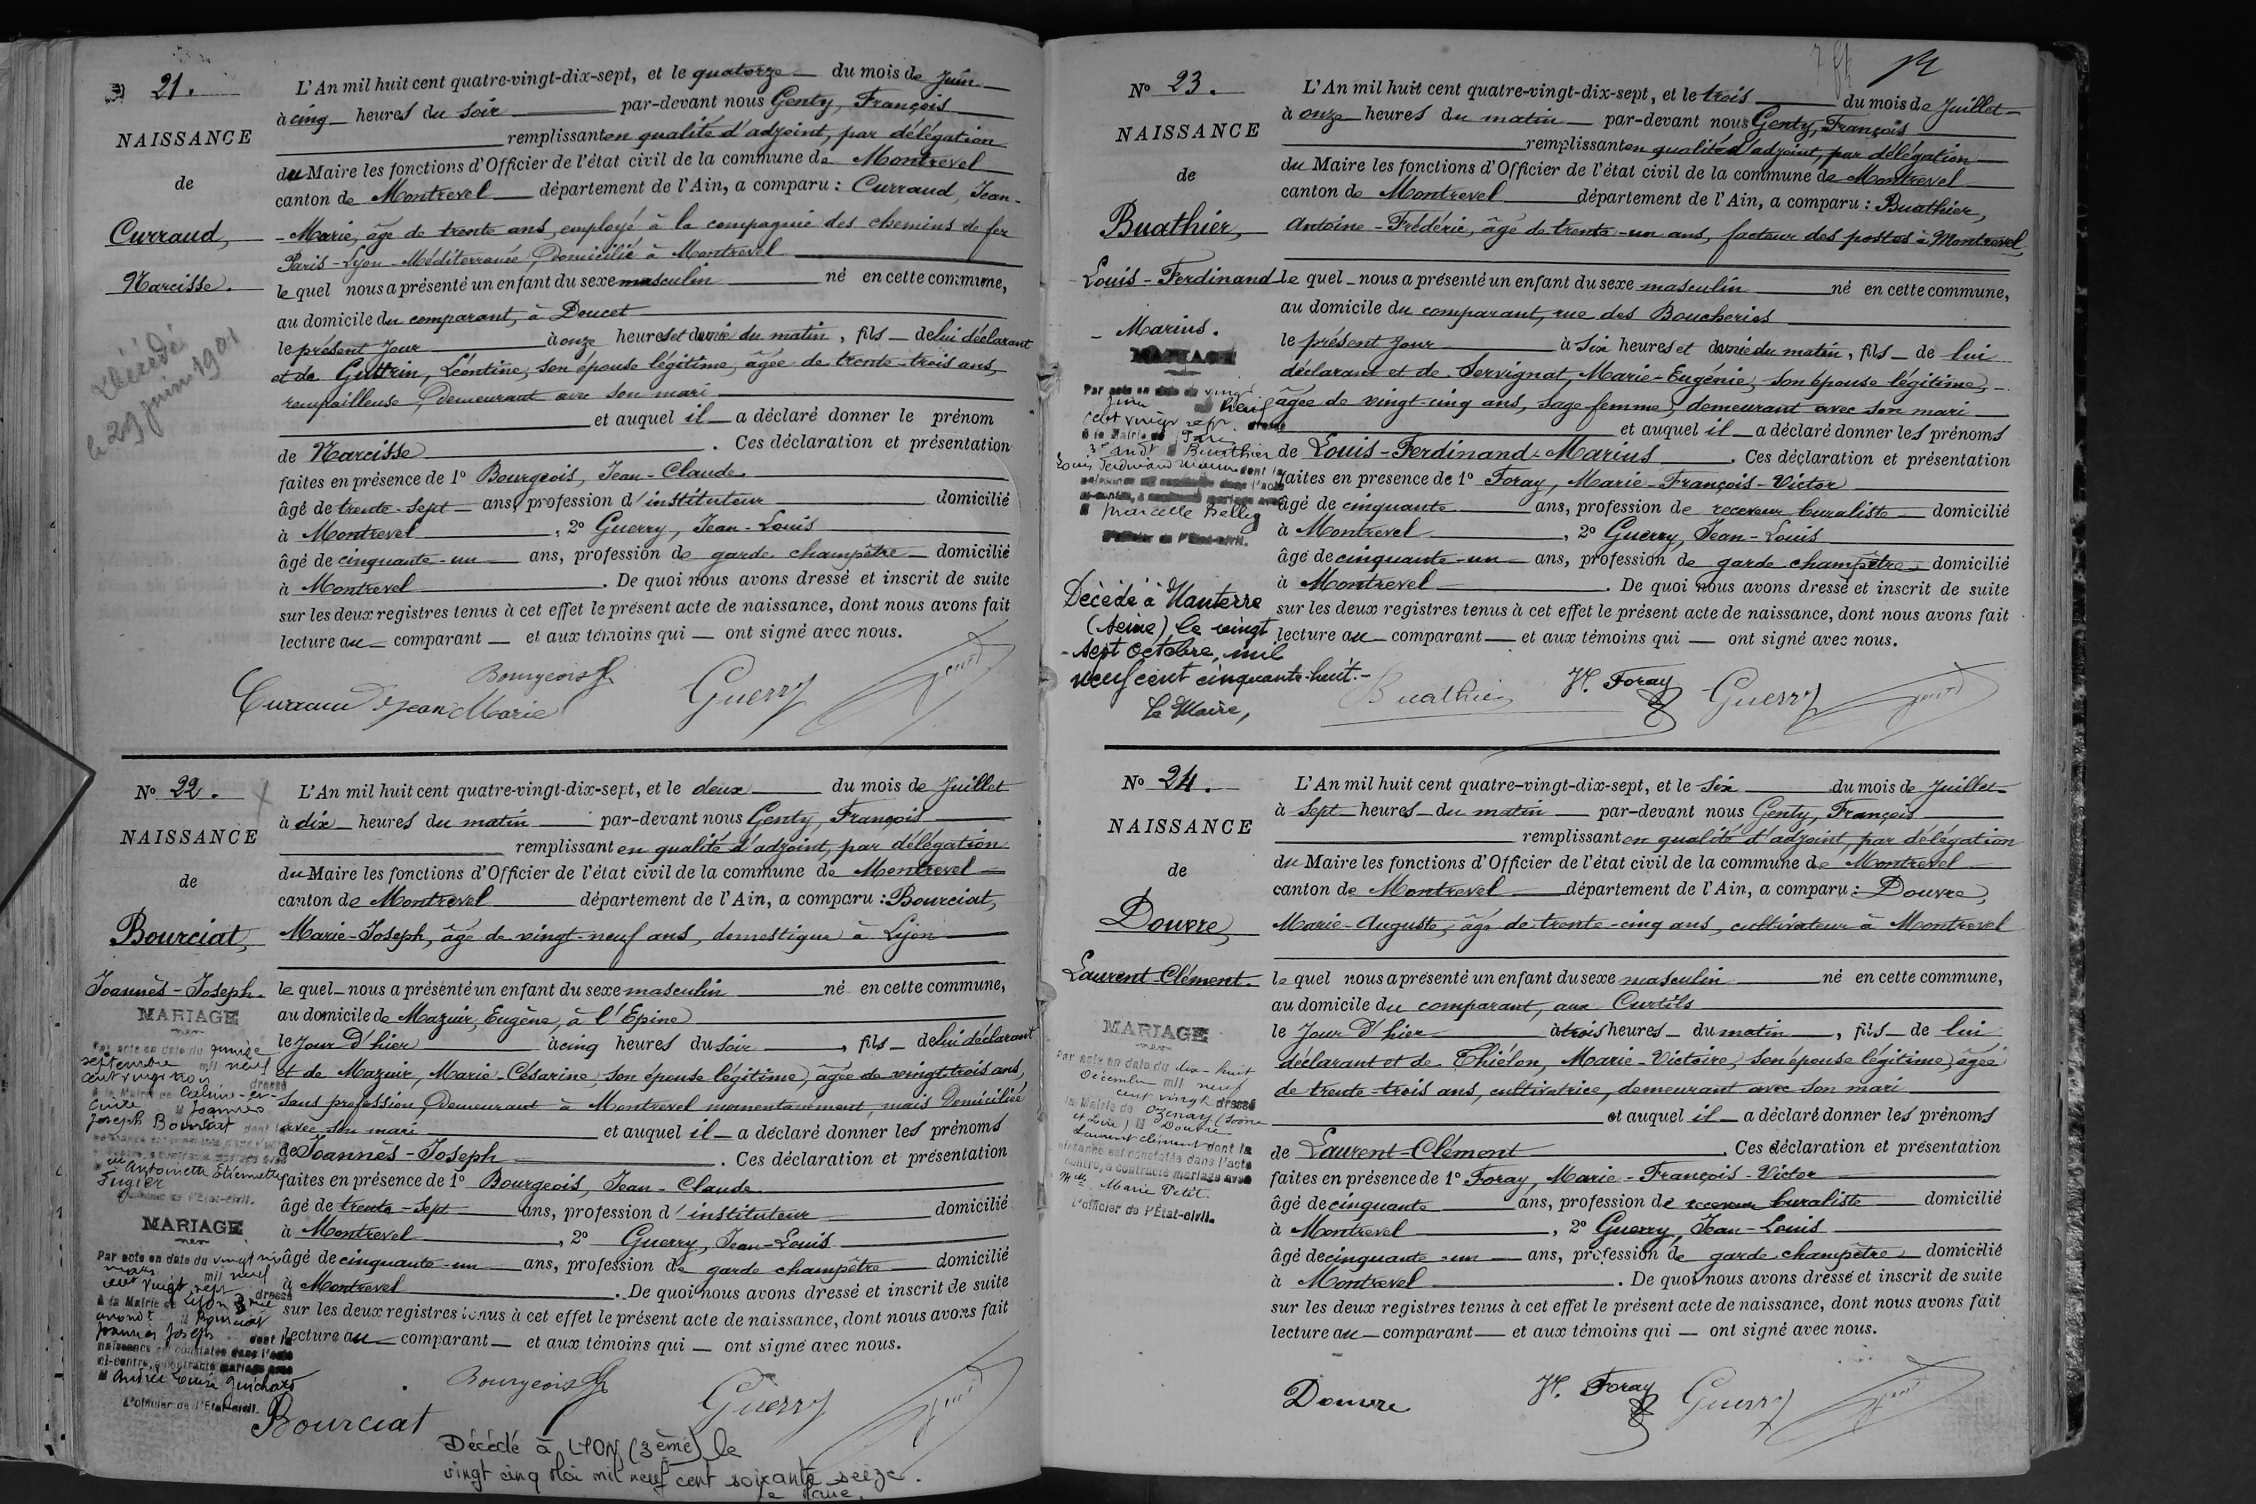 21.
NAISSANCE
de
Curraud,
Narcisse.
Décédé
le 29 juin 1901
L'An mil huit cent quatre-vingt-dix-sept, et le quatorze du mois de Juin
à cinq heures du soir par-devant nous Genty, François
remplissant en qualité d'adjoint, par délégation
du Maire les fonctions d'Officier de l'état civil de la commune de Montrevel
canton de Montrevel département de l'Ain, a comparu : Curraud, Jean-
-Marie, âgé de trente ans, employé à la compagnie des chemins de fer
Paris-Lyon-Méditerranée, Domicilié à Montrevel
le quel nous a présenté un enfant du sexe masculin né en cette commune,
au domicile du comparant, à Doucet
le présent jour à onze heures et demie du matin, fils de lui déclarant
et de Guttrin, Léontine, son épouse légitime, âgée de trente-trois ans,
rempailleuse, Demeurant avec son mari
et auquel il a déclaré donner le prénom
de Narcisse. Ces déclaration et présentation
faites en présence de 1º Bourgeois, Jean-Claude
âgé de trente-sept ans, profession d'instituteur domicilié
à Montrevel, 2º Guerry, Jean-Louis
âgé de cinquante-un ans, profession de garde champêtre domicilié
à Montrevel. De quoi nous avons dressé et inscrit de suite
sur les deux registres tenus à cet effet le présent acte de naissance, dont nous avons fait
lecture au comparant et aux témoins qui ont signé avec nous.
Bourgeois
Curraud Jean Marie
Guerry
Nº 22.
NAISSANCE
de
Bourciat,
Joannès-Joseph.
MARIAGE
Par acte en date du quinze
septembre mil neuf
cent vingt trois
dressé
à la Mairie de Caluire-et-
Cuire M Joannès
Joseph Bourciat dont la
Antoinette Etiennette
Fugier
L'officier de l'État-civil.
MARIAGE
Par acte en date du vingt six
mars mil neuf
cent vingt sept
dressé
à la Mairie de Lyon 3me
arrondt M Bourciat
Joannès Joseph dont la
naissance est constatée dans l'acte
ci-contre, a contracté mariage avec
M Andrée Louise Guichard
L'officier de l'État-civil.
L'An mil huit cent quatre-vingt-dix-sept, et le deux du mois de Juillet
à dix heures du matin par-devant nous Genty, François
remplissant en qualité d'adjoint, par délégation
du Maire les fonctions d'Officier de l'état civil de la commune de Montrevel
canton de Montrevel département de l'Ain, a comparu : Bourciat,
Marie-Joseph, âgé de vingt-neuf ans, domestique à Lyon
le quel nous a présenté un enfant du sexe masculin né en cette commune,
au domicile de Mazuir, Eugène, à l'Epine
le Jour d'hier à cinq heures du soir, fils de lui déclarant
et de Mazuir, Marie-Césarine, son épouse légitime, âgée de vingt trois ans,
sans profession, Demeurant à Montrevel momentanément, mais Domiciliée
avec son mari et auquel il a déclaré donner les prénoms
de Joannès-Joseph. Ces déclaration et présentation
faites en présence de 1º Bourgeois, Jean-Claude
âgé de trente-sept ans, profession d'instituteur domicilié
à Montrevel, 2º Guerry, Jean-Louis
âgé de cinquante-un ans, profession de garde champêtre domicilié
à Montrevel. De quoi nous avons dressé et inscrit de suite
sur les deux registres tenus à cet effet le présent acte de naissance, dont nous avons fait
lecture au comparant et aux témoins qui ont signé avec nous.
Bourgeois
Guerry
Bourciat
Décédé à LYON (3ème) le
vingt cinq Mai mil neuf cent soixante seize.
Nº 23.
NAISSANCE
de
Buathier,
Louis-Ferdinand
-Marius.
MARIAGE
Par acte en date du vingt
juin neuf
cent vingt sept
à la Mairie de Paris
3e arrdt M Buathier
Louis Ferdinand Marius dont la
naissance est constatée dans l'acte
ci-contre, a contracté mariage avec
M Marcelle Hellig
L'officier de l'État-civil.
Décédé à Nanterre
(Seine) le vingt
-sept Octobre, mil
neuf cent cinquante-huit.-
Le Maire,
L'An mil huit cent quatre-vingt-dix-sept, et le trois du mois de Juillet
à onze heures du matin par-devant nous Genty, François
remplissant en qualité d'adjoint, par délégation
du Maire les fonctions d'Officier de l'état civil de la commune de Montrevel
canton de Montrevel département de l'Ain, a comparu : Buathier,
Antoine-Frédéric, âgé de trente-un ans, facteur des postes à Montrevel,
le quel nous a présenté un enfant du sexe masculin né en cette commune,
au domicile du comparant, rue des Boucheries
le présent jour à six heures et demie du matin, fils de lui
déclarant et de Servignat, Marie-Eugénie, son épouse légitime,
âgée de vingt-cinq ans, sage-femme, demeurant avec son mari
et auquel il a déclaré donner les prénoms
de Louis-Ferdinand-Marius. Ces déclaration et présentation
faites en présence de 1º Foray, Marie-François-Victor
âgé de cinquante ans, profession de receveur buraliste domicilié
à Montrevel, 2º Guerry, Jean-Louis
âgé de cinquante-un ans, profession de garde champêtre domicilié
à Montrevel. De quoi nous avons dressé et inscrit de suite
sur les deux registres tenus à cet effet le présent acte de naissance, dont nous avons fait
lecture au comparant et aux témoins qui ont signé avec nous.
Buathier
Foray
Guerry
Nº 24.
NAISSANCE
de
Douvre,
Laurent-Clément.
MARIAGE
Par acte en date du dix-huit
Décembre mil neuf
cent vingt dressé
à la Mairie de Ozenay (Saône
et Loire) M Douvre
Laurent Clément dont la
naissance est constatée dans l'acte
ci-contre, a contracté mariage avec
Mlle Marie Petit.
L'officier de l'État-civil.
L'An mil huit cent quatre-vingt-dix-sept, et le six du mois de Juillet
à sept heures du matin par-devant nous Genty, François
remplissant en qualité d'adjoint, par délégation
du Maire les fonctions d'Officier de l'état civil de la commune de Montrevel
canton de Montrevel département de l'Ain, a comparu : Douvre,
Marie-Auguste, âgé de trente-cinq ans, cultivateur à Montrevel
le quel nous a présenté un enfant du sexe masculin né en cette commune,
au domicile du comparant, aux Curtils
le Jour d'hier à trois heures du matin, fils de lui
déclarant et de Thiélon, Marie-Victoire, son épouse légitime, âgée
de trente-trois ans, cultivatrice, demeurant avec son mari
et auquel il a déclaré donner les prénoms
de Laurent-Clément. Ces déclaration et présentation
faites en présence de 1º Foray, Marie-François-Victor
âgé de cinquante ans, profession de receveur buraliste domicilié
à Montrevel, 2º Guerry, Jean-Louis
âgé de cinquante-un ans, profession de garde champêtre domicilié
à Montrevel. De quoi nous avons dressé et inscrit de suite
sur les deux registres tenus à cet effet le présent acte de naissance, dont nous avons fait
lecture au comparant et aux témoins qui ont signé avec nous.
Douvre
Foray
Guerry